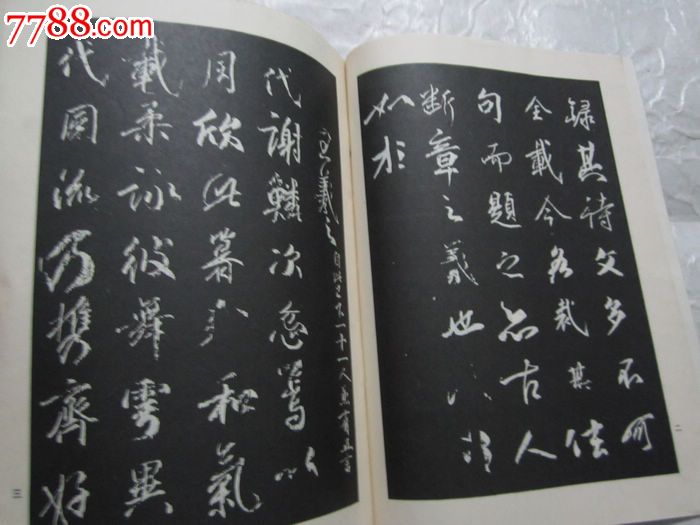 7788.com
錄其詩文多不可
全載今各裁其佳
句而題之亦古人
斷章之義也
如於
二
王羲之 自此已下一十一人兼有五言
代謝鱗次忽焉以
周欣此暮春和氣
載柔詠彼舞雩異
代同流乃攜齊好
三